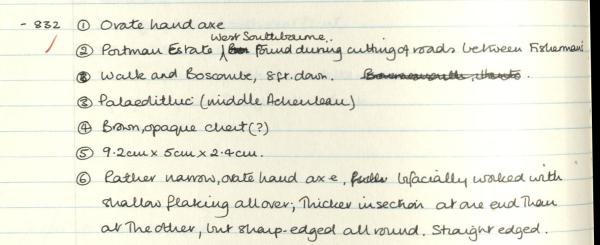 - 832 ① Ovate hand axe
West Southbourne.
② Portman Estate found during cutting of roads between Fisherman's
Walk and Boscombe, 8ft. down. Bournemouth, Hants.
③ Palaeolithic (middle Acheulean)
④ Brown, opaque chert (?)
⑤ 9.2cm x 5cm x 2.4cm.
⑥ Rather narrow, ovate hand axe, bifacially worked with
shallow flaking all over; Thicker in section at one end Than
at The other, but sharp-edged all round. Straight edged.